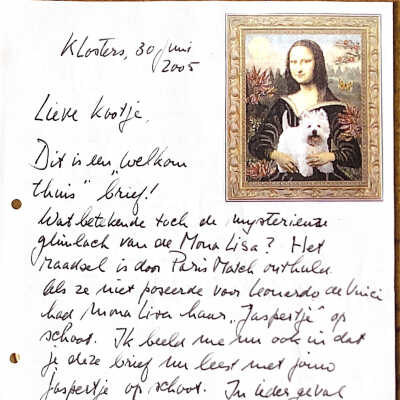 Klosters, 30 juni
2005
Lieve Kootje,
Dit is een „welkom
thuis" brief!
Wat betekende toch de mysterieuze
glimlach van de Mona Lisa? Het
raadsel is door Paris Match onthuld.
Als ze niet poseerde voor Leonardo da Vinci
had Mona Lisa haar „Jaspertje" op
schoot. Ik beeld me nu ook in dat
je deze brief nu leest met jouw
jaspertje op schoot. In ieder geval